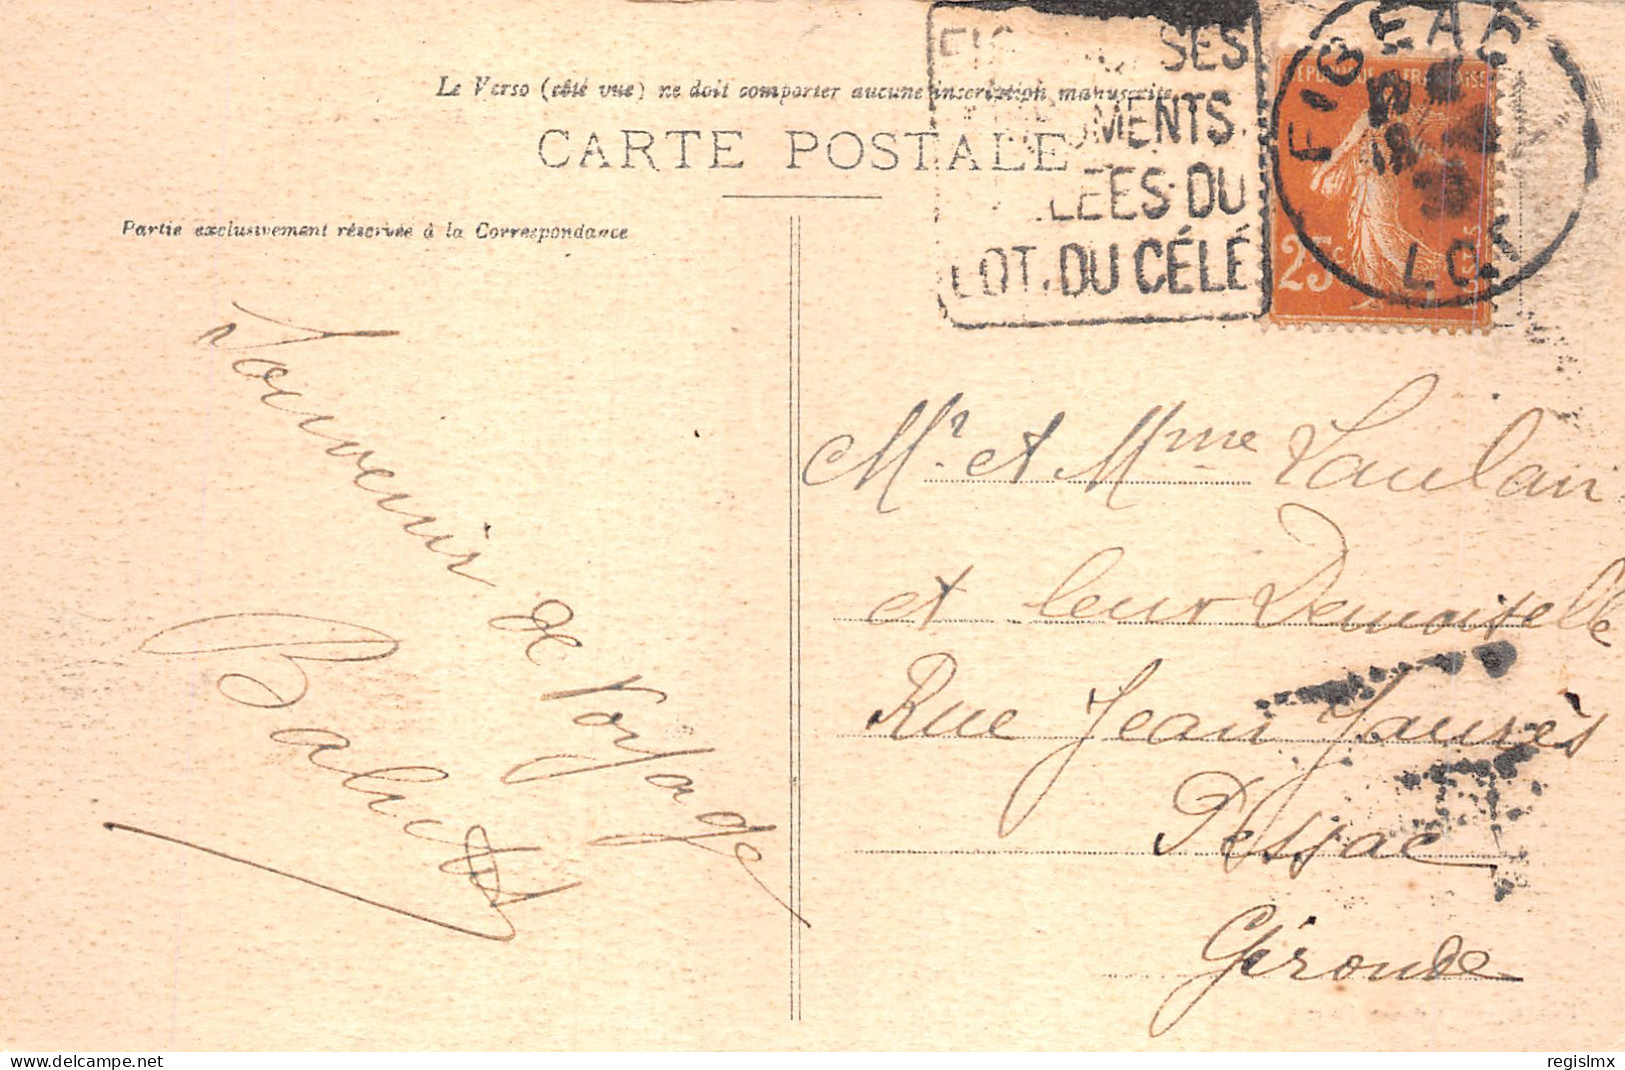 Le Verso (côté vue) ne doit comporter aucune inscription manuscrite
CARTE POSTALE
Partie exclusivement réservée à la Correspondance
SES
MENTS.
LÉES DU
LOT. DU CÉLÉ
FIGEAC
LOT
25c
Souvenir de Voyage
Mr et Mme Laulan
et leur Demoiselle
Rue Jean Jaurès
Pessac
Gironde
delcampe.net
regislmx